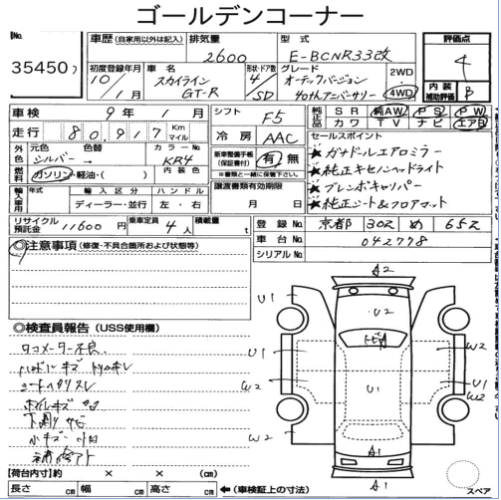 ゴールデンコーナー
35450
車歴 (自家用以外は記入) 排気量 2600 型式 E-BCNR33改 評価点 4
初度登録年月 10/1 車名 スカイライン GT-R 形状・ドア数 4/SD グレード オーテックバージョン 40thアニバーサリー 2WD 4WD 内装補助評価 B
車検 9年 1月 シフト F5 純正品 SR 純AW PS PW
走行 80,917 Km マイル 冷房 AAC カワ TV ナビ エアB
外色 元色 シルバー → 色替 カラーNo. KR4 新車整備手帳 (保証書付) 有・無 セールスポイント
燃料 ガソリン・軽油・( ) 内装色 ※書類と一緒に保管して下さい。
★ガナドールエアロミラー
★純正キセノンヘッドライト
★ブレンボキャリパー
★純正シート&フロアマット
輸入車用 年式 輸入区分 ハンドル 譲渡書類有効期限
ディーラー・並行 左・右 月 日
リサイクル預託金 11600 円 乗車定員 4 人 積載量 t
登録No. 京都 302 め 652
車台No. 042778
シリアルNo.
◎注意事項 (修復・不具合箇所および状態等)
◎検査員報告 (USS使用欄)
タコメーター不良
シートヘタリスレ
ホイルキズ
下廻りサビ
小キズ
A2
U1 U2
U1 W2
W2 U1 U1
W2
W2 W2
A1
A1
【荷台内寸】約 × × (cm)
長さ cm 幅 cm 高さ cm ←(車検証上の寸法)
スペア